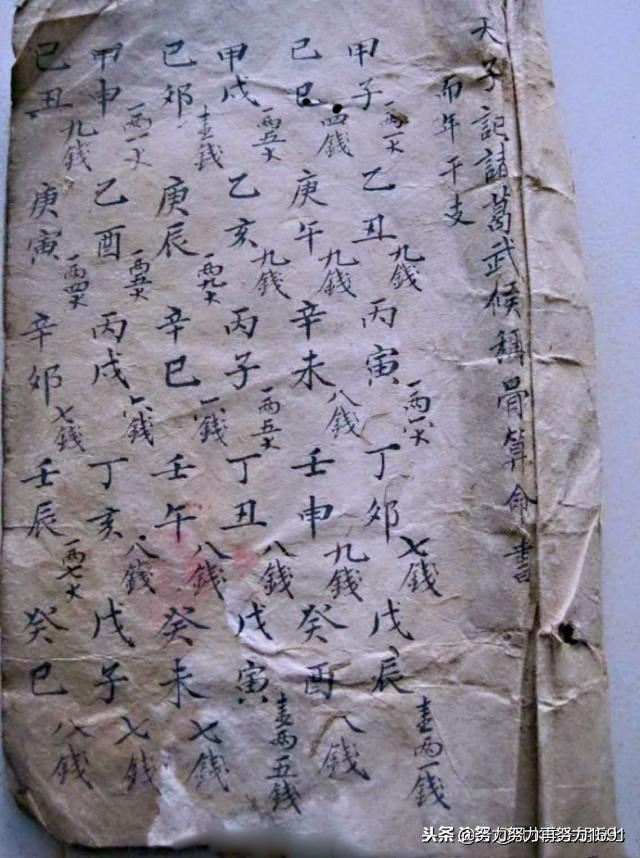 天子記諸葛武候稱骨算命書
而年干支
甲子 一两一大 乙丑 九錢 丙寅 一两八大 丁夘 七錢 戊辰 壹两一錢
己巳 四錢 庚午 九錢 辛未 八錢 壬申 九錢 癸酉 八錢
甲戌 一两五大 乙亥 九錢 丙子 一两五大 丁丑 八錢 戊寅 壹两五錢
己夘 壹錢 庚辰 一两九大 辛巳 錢 壬午 八錢 癸未 七錢
甲申 一两一大 乙酉 一两五大 丙戌 六錢 丁亥 八錢 戊子 七錢
己丑 九錢 庚寅 一两四大 辛夘 七錢 壬辰 一两七大 癸巳 八錢
头条 @努力努力再努力